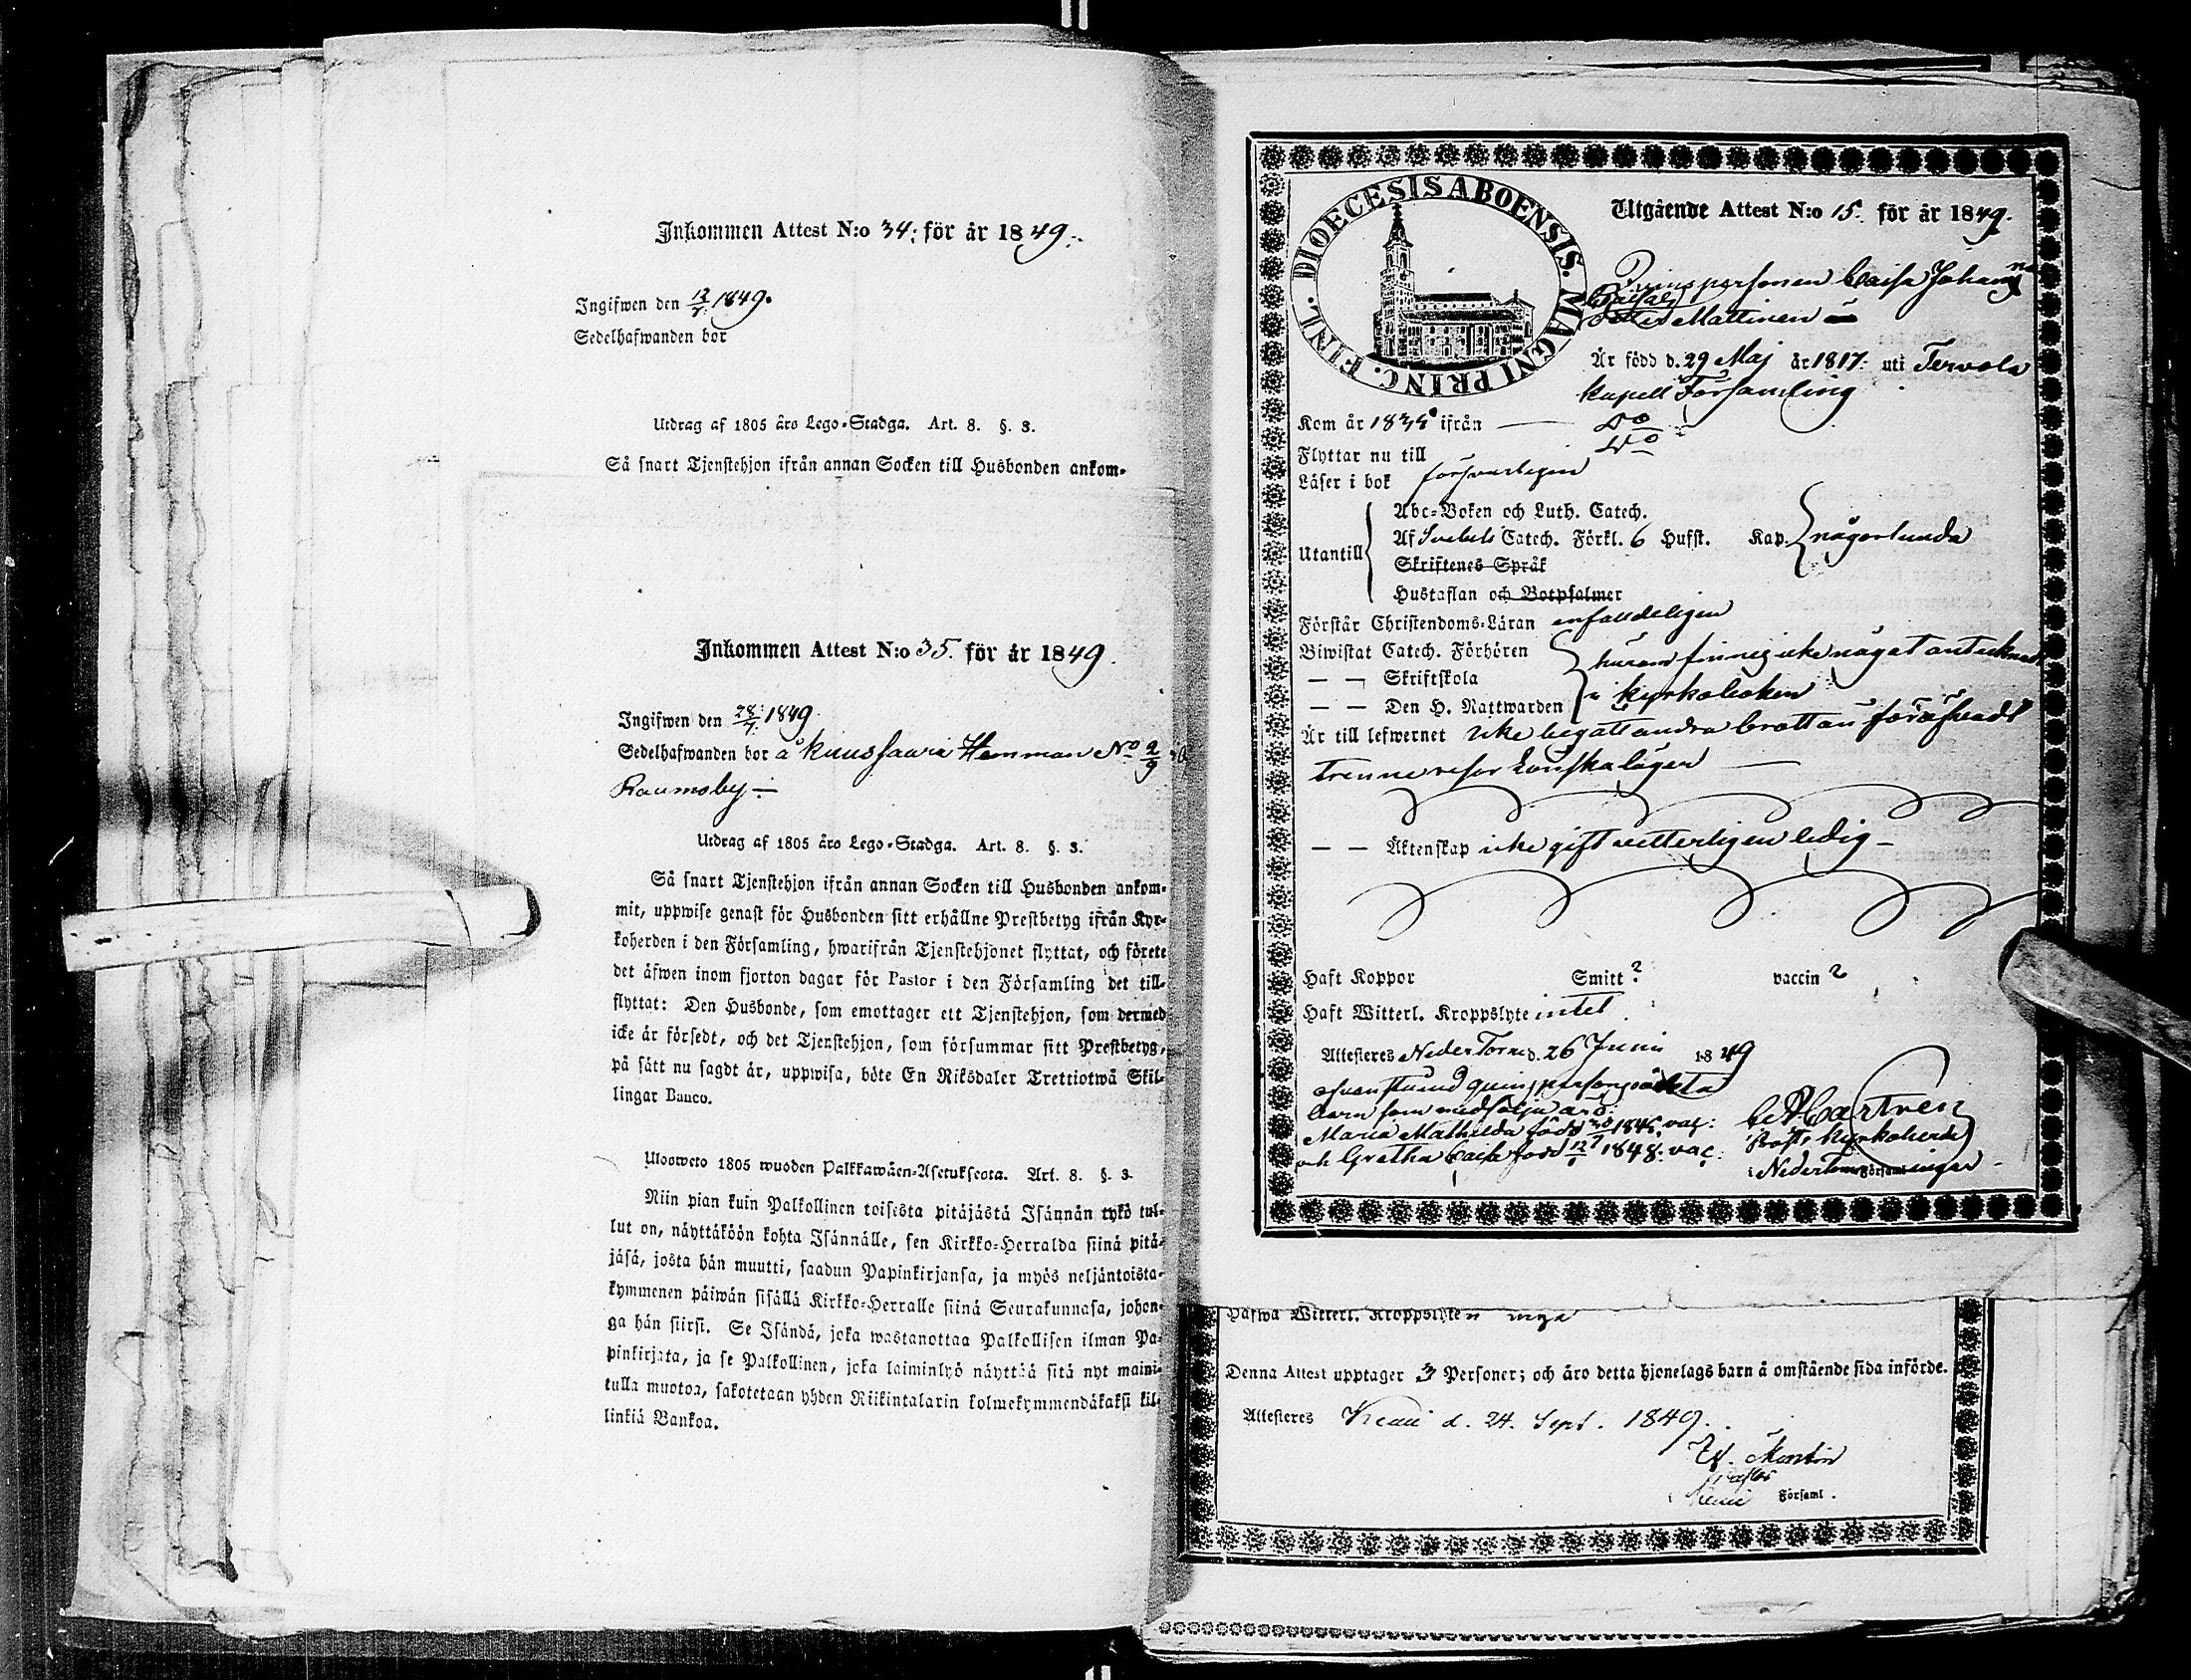 Inkommen Attest N:o 34: för år 1849.
Ingifwen den 12/7 1849.
Sedelhafwanden bor
Utdrag af 1805 års Lego-Stadga. Art. 8. §. 3.
Så snart Tjenstehjon ifrån annan Socken till Husbonden ankom-
Inkommen Attest N:o 35. för år 1849.
Ingifwen den 28/7 1849.
Sedelhafwanden bor å Kuussaari Hemman No 2/9 i
Raumoby
Utdrag af 1805 års Lego-Stadga. Art. 8. §. 3.
Så snart Tjenstehjon ifrån annan Socken till Husbonden ankom-
mit, uppwise genast för Husbonden sitt erhållne Prestbetyg ifrån Kyr-
koherden i den Församling, hwarifrån Tjenstehjonet flyttat, och förete
det äfwen inom fjorton dagar för Pastor i den Församling det till-
flyttat: Den Husbonde, som emottager ett Tjenstehjon, som dermed
icke är försedt, och det Tjenstehjon, som försummar sitt Prestbetyg,
på sätt nu sagdt är, uppwisa, böte En Riksdaler Trettiotwå Skil-
lingar Banco.
Ulosweto 1805 wuoden Palkkawäen-Asetuksesta. Art. 8. §. 3.
Niin pian kuin Palkollinen toisesta pitäjästä Isännän tykö tul-
lut on, näyttäköön kohta Isännälle, sen Kirkko-Herralda siinä pitä-
jäsä, josta hän muutti, saadun Papinkirjansa, ja myös neljäntoista-
kymmenen päiwän sisällä Kirkko-Herralle siinä Seurakunnasa, johon-
ga hän siirsi. Se Isändä, joka wastanottaa Palkollisen ilman Pa-
pinkirjata, ja se Palkollinen, joka laiminlyö näyttää sitä nyt maini-
tulla muotoa, sakotetaan yhden Riikintalarin kolmekymmendäkaksi kil-
linkiä Bankoa.
DIOECESIS ABOENSIS. MAGNI PRINC. FINL.
Utgående Attest N:o 15. för år 1849.
Qvinspersonen Caisa Johanna
Mattinen
Är född d. 29 Maj år 1817. uti Tervola
kapell Församling
Kom år ifrån Do
Flyttar nu till Do
Läser i bok försvarligen
Utantill
Abc-Boken och Luth. Catech.
Af Svebeli Catech. Förkl. 6 Hufst. Kap. någorlunda
Skriftenes Språk
Hustaflan och Botpsalmer
Förstår Christendoms-Läran enfaldeligen
Biwistat Catech. Förhören härom finnes icke något antecknat
— — Skriftskola
— — Den H. Nattwarden i kyrkoboken
Är till lefwernet icke begått andra brott än föröfwadt
trenne resor Lönskaläger
— — Äktenskap icke gift vetterligen ledig
Haft Koppor Smitt? vaccin?
Haft Witterl. Kroppslyte intet
Attesteras Neder Torneå d. 26 Junii 1849
barn som medfölja äro:
Maria Mathilda född 1846. vac:
och Gretha Caisa född 1848. vac:
Castren
Kyrkoherde
i Neder Torneå Församlingar
Hafwa Witterl. Kroppslyten inga
Denna Attest upptager 3 Personer; och äro detta hjonelags barn å omstående sida införde.
Attesteras Kemi d. 24. Sept. 1849.
Pastor
i Kemi Församl.